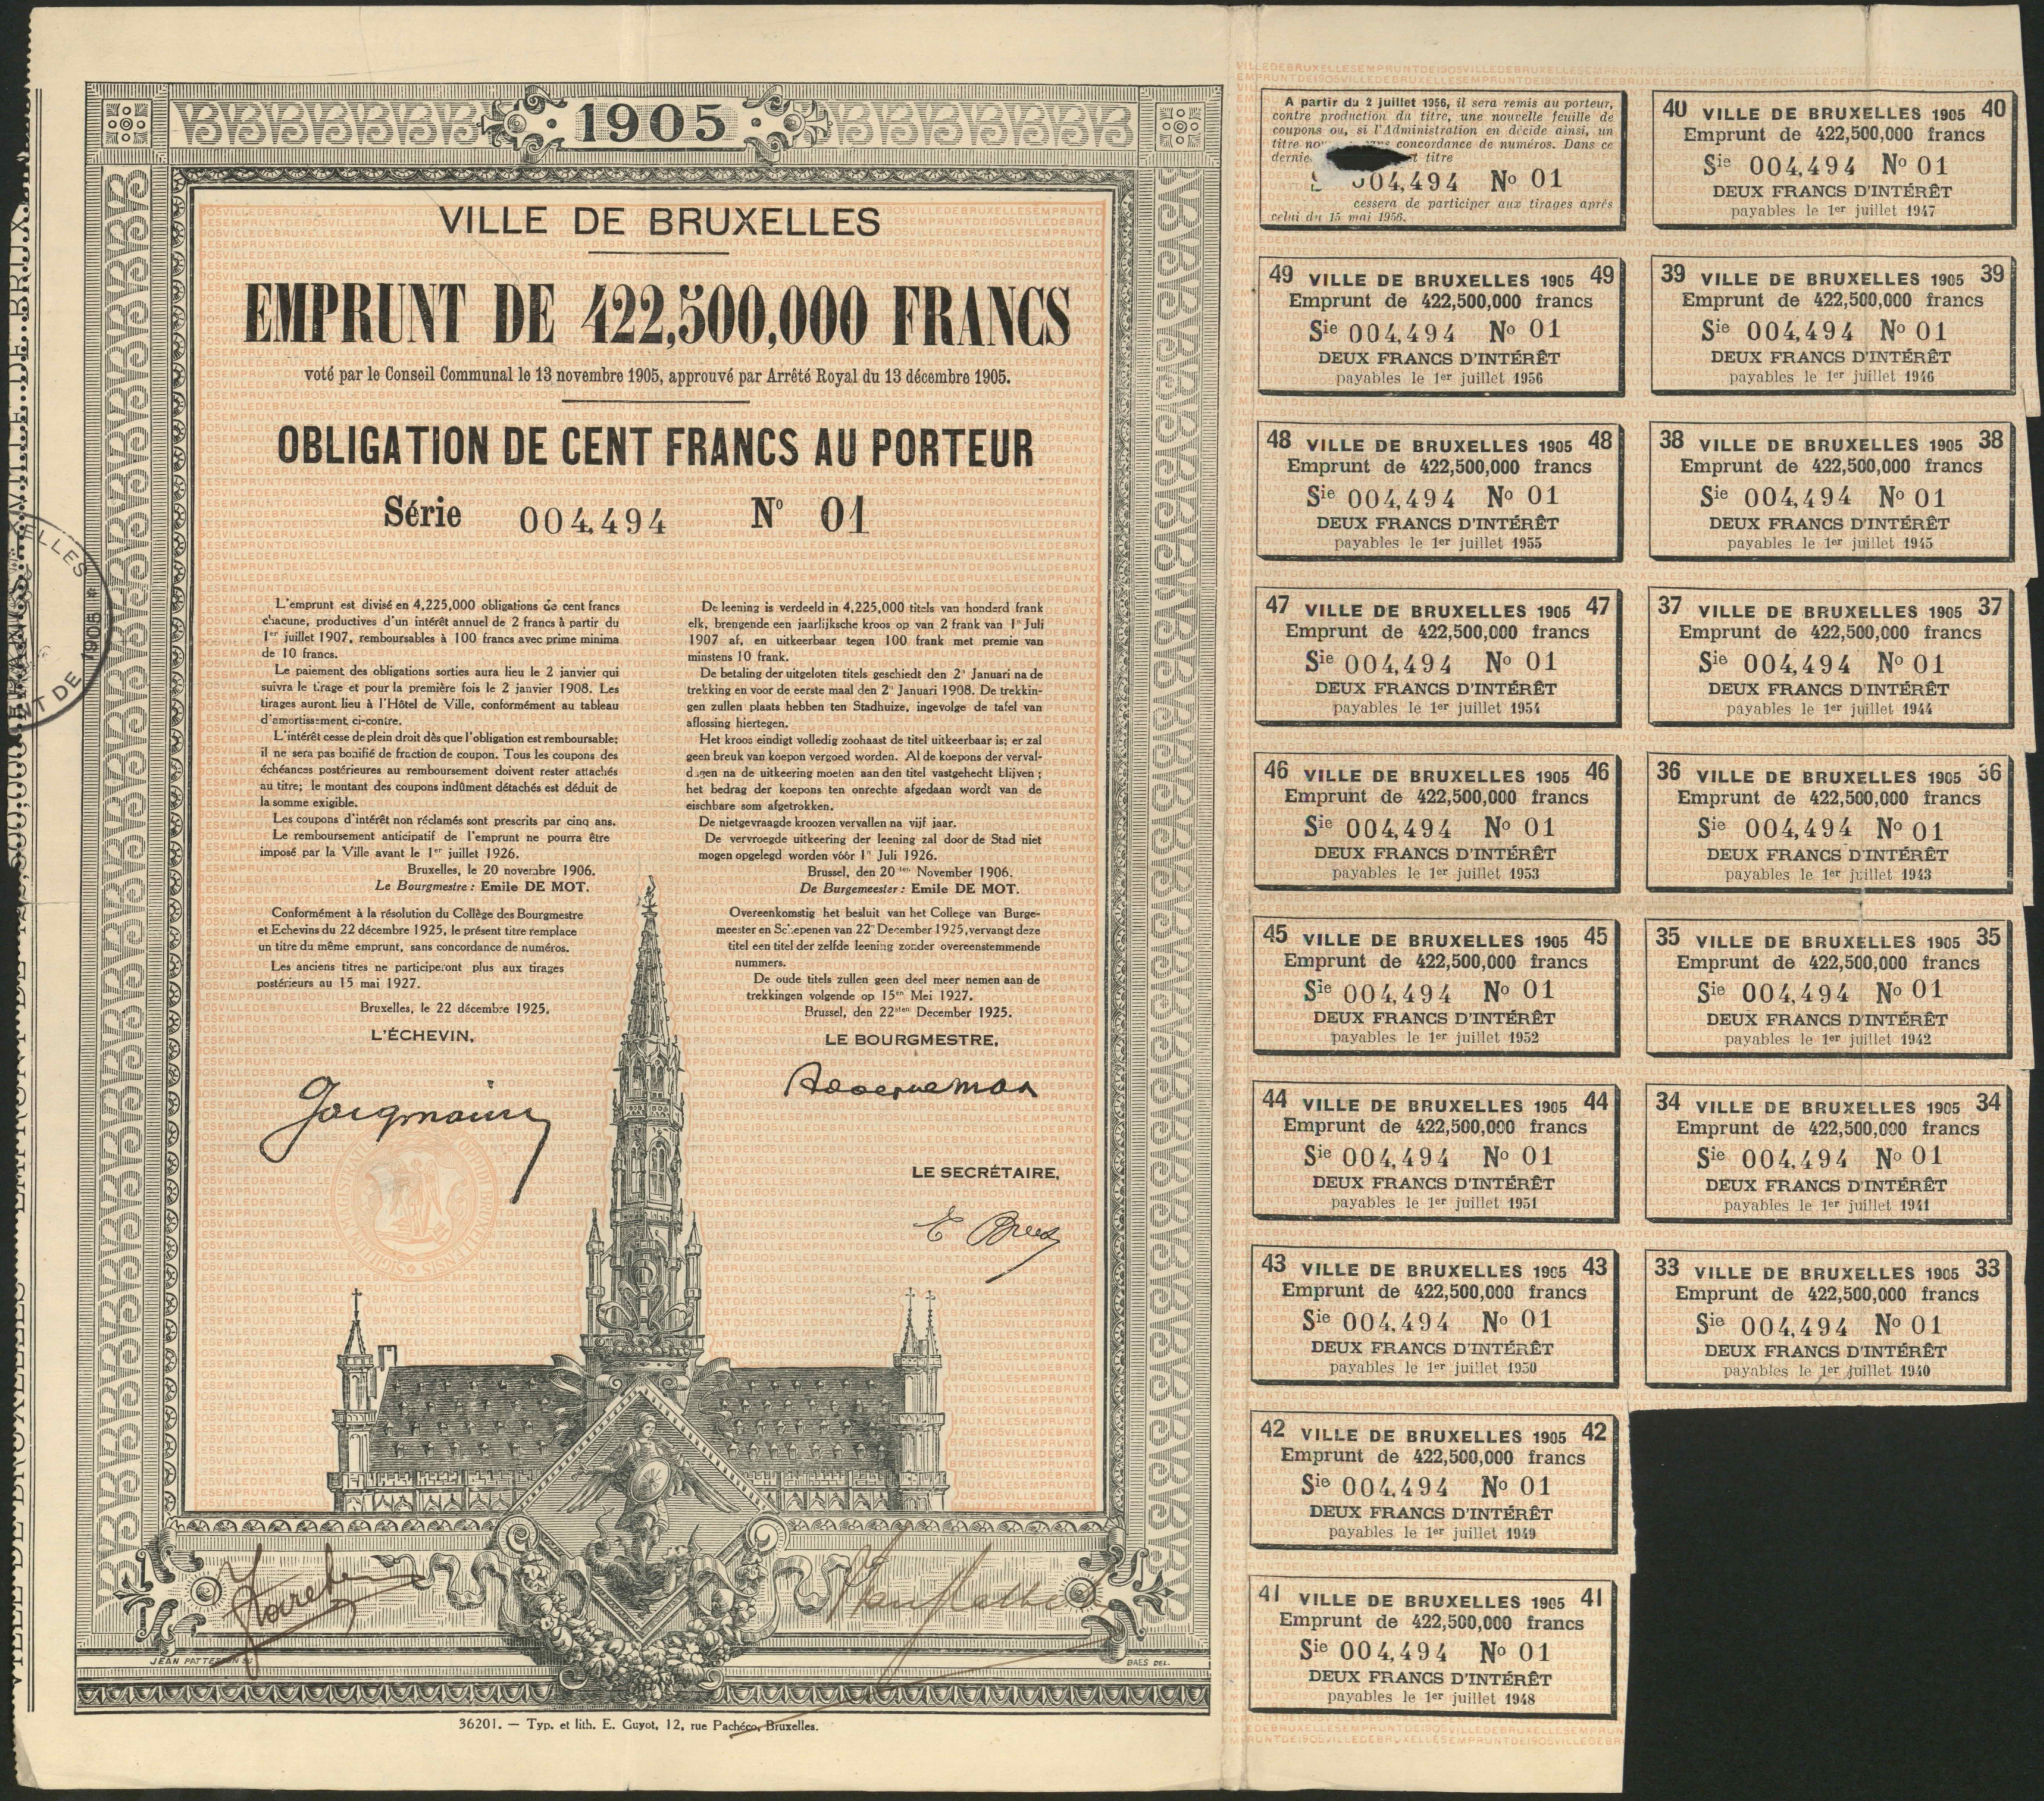 1905
VILLE DE BRUXELLES
EMPRUNT DE 422,500,000 FRANCS
voté par le Conseil Communal le 13 novembre 1905, approuvé par Arrêté Royal du 13 décembre 1905.
OBLIGATION DE CENT FRANCS AU PORTEUR
Série 004,494 No 01
L'emprunt est divisé en 4,225,000 obligations de cent francs
chacune, productives d'un intérêt annuel de 2 francs à partir du
1er juillet 1907, remboursables à 100 francs avec prime minima
de 10 francs.
Le paiement des obligations sorties aura lieu le 2 janvier qui
suivra le tirage et pour la première fois le 2 janvier 1908. Les
tirages auront lieu à l'Hôtel de Ville, conformément au tableau
d'amortissement ci-contre.
L'intérêt cesse de plein droit dès que l'obligation est remboursable;
il ne sera pas bonifié de fraction de coupon. Tous les coupons des
échéances postérieures au remboursement doivent rester attachés
au titre; le montant des coupons indûment détachés est déduit de
la somme exigible.
Les coupons d'intérêt non réclamés sont prescrits par cinq ans.
Le remboursement anticipatif de l'emprunt ne pourra être
imposé par la Ville avant le 1er juillet 1926.
Bruxelles, le 20 novembre 1906.
Le Bourgmestre : Emile DE MOT.
Conformément à la résolution du Collège des Bourgmestre
et Echevins du 22 décembre 1925, le présent titre remplace
un titre du même emprunt, sans concordance de numéros.
Les anciens titres ne participeront plus aux tirages
postérieurs au 15 mai 1927.
Bruxelles, le 22 décembre 1925.
L'ÉCHEVIN,
De leening is verdeeld in 4,225,000 titels van honderd frank
elk, brengende een jaarlijksche kroos op van 2 frank van 1n Juli
1907 af, en uitkeerbaar tegen 100 frank met premie van
minstens 10 frank.
De betaling der uitgeloten titels geschiedt den 2n Januari na de
trekking en voor de eerste maal den 2n Januari 1908. De trekkin-
gen zullen plaats hebben ten Stadhuize, ingevolge de tafel van
aflossing hiertegen.
Het kroos eindigt volledig zoohaast de titel uitkeerbaar is; er zal
geen breuk van koepon vergoed worden. Al de koepons der verval-
dagen na de uitkeering moeten aan den titel vastgehecht blijven ;
het bedrag der koepons ten onrechte afgedaan wordt van de
eischbare som afgetrokken.
De nietgevraagde kroozen vervallen na vijf jaar.
De vervroegde uitkeering der leening zal door de Stad niet
mogen opgelegd worden vóór 1n Juli 1926.
Brussel, den 20sten November 1906.
De Burgemeester : Emile DE MOT.
Overeenkomstig het besluit van het College van Burge-
meester en Schepenen van 22n December 1925, vervangt deze
titel een titel der zelfde leening zonder overeenstemmende
nummers.
De oude titels zullen geen deel meer nemen aan de
trekkingen volgende op 15en Mei 1927.
Brussel, den 22sten December 1925.
LE BOURGMESTRE,
LE SECRÉTAIRE,
JEAN PATTE
BAES DEL.
36201. — Typ. et lith. E. Guyot, 12, rue Pachéco, Bruxelles.
A partir du 2 juillet 1956, il sera remis au porteur,
contre production du titre, une nouvelle feuille de
coupons ou, si l'Administration en décide ainsi, un
titre concordance de numéros. Dans ce
titre
04,494 No 01
cessera de participer aux tirages après
celui du 15 mai 1956.
49 VILLE DE BRUXELLES 1905 49
Emprunt de 422,500,000 francs
Sie 004,494 No 01
DEUX FRANCS D'INTÉRÊT
payables le 1er juillet 1956
48 VILLE DE BRUXELLES 1905 48
Emprunt de 422,500,000 francs
Sie 004,494 No 01
DEUX FRANCS D'INTÉRÊT
payables le 1er juillet 1955
47 VILLE DE BRUXELLES 1905 47
Emprunt de 422,500,000 francs
Sie 004,494 No 01
DEUX FRANCS D'INTÉRÊT
payables le 1er juillet 1954
46 VILLE DE BRUXELLES 1905 46
Emprunt de 422,500,000 francs
Sie 004,494 No 01
DEUX FRANCS D'INTÉRÊT
payables le 1er juillet 1953
45 VILLE DE BRUXELLES 1905 45
Emprunt de 422,500,000 francs
Sie 004,494 No 01
DEUX FRANCS D'INTÉRÊT
payables le 1er juillet 1952
44 VILLE DE BRUXELLES 1905 44
Emprunt de 422,500,000 francs
Sie 004,494 No 01
DEUX FRANCS D'INTÉRÊT
payables le 1er juillet 1951
43 VILLE DE BRUXELLES 1905 43
Emprunt de 422,500,000 francs
Sie 004,494 No 01
DEUX FRANCS D'INTÉRÊT
payables le 1er juillet 1950
42 VILLE DE BRUXELLES 1905 42
Emprunt de 422,500,000 francs
Sie 004,494 No 01
DEUX FRANCS D'INTÉRÊT
payables le 1er juillet 1949
41 VILLE DE BRUXELLES 1905 41
Emprunt de 422,500,000 francs
Sie 004,494 No 01
DEUX FRANCS D'INTÉRÊT
payables le 1er juillet 1948
40 VILLE DE BRUXELLES 1905 40
Emprunt de 422,500,000 francs
Sie 004,494 No 01
DEUX FRANCS D'INTÉRÊT
payables le 1er juillet 1947
39 VILLE DE BRUXELLES 1905 39
Emprunt de 422,500,000 francs
Sie 004,494 No 01
DEUX FRANCS D'INTÉRÊT
payables le 1er juillet 1946
38 VILLE DE BRUXELLES 1905 38
Emprunt de 422,500,000 francs
Sie 004,494 No 01
DEUX FRANCS D'INTÉRÊT
payables le 1er juillet 1945
37 VILLE DE BRUXELLES 1905 37
Emprunt de 422,500,000 francs
Sie 004,494 No 01
DEUX FRANCS D'INTÉRÊT
payables le 1er juillet 1944
36 VILLE DE BRUXELLES 1905 36
Emprunt de 422,500,000 francs
Sie 004,494 No 01
DEUX FRANCS D'INTÉRÊT
payables le 1er juillet 1943
35 VILLE DE BRUXELLES 1905 35
Emprunt de 422,500,000 francs
Sie 004,494 No 01
DEUX FRANCS D'INTÉRÊT
payables le 1er juillet 1942
34 VILLE DE BRUXELLES 1905 34
Emprunt de 422,500,000 francs
Sie 004,494 No 01
DEUX FRANCS D'INTÉRÊT
payables le 1er juillet 1941
33 VILLE DE BRUXELLES 1905 33
Emprunt de 422,500,000 francs
Sie 004,494 No 01
DEUX FRANCS D'INTÉRÊT
payables le 1er juillet 1940